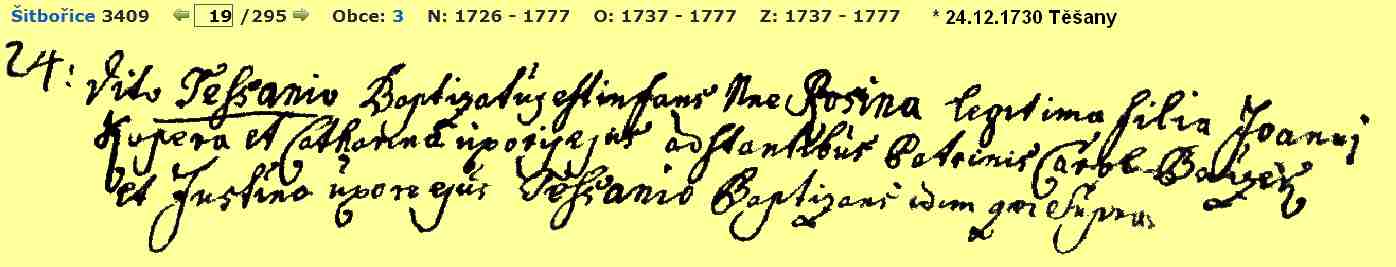 Šitbořice 3409 19 /295 Obce: 3 N: 1726 - 1777 O: 1737 - 1777 Z: 1737 - 1777 * 24.12.1730 Těšany
24: Dito Tessanio Baptizatus est infans Nne Rosina legitima filia Joanis
Kupera et Catharina uxoris ejus adstantibus Patrinis Carol
et Justina uxore ejus Tessanio Baptizans idem qui Supra